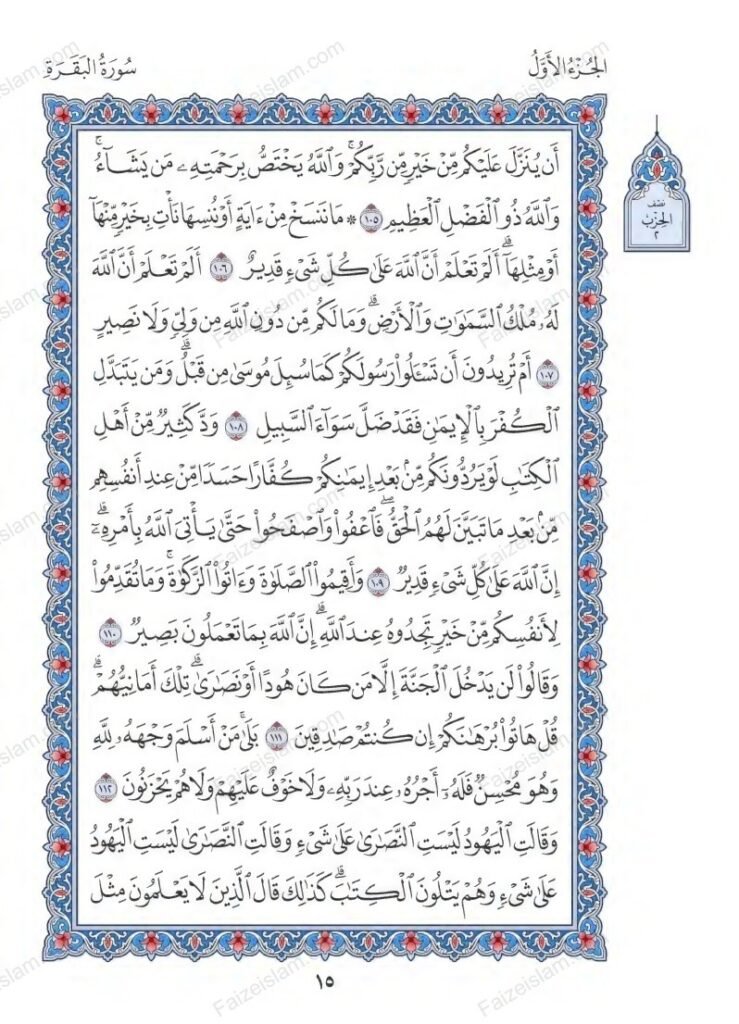 الجُزْءُ الأَوَّلُ
سُورَةُ البَقَرَةِ
نصف
الحزب
٢
أَن يُنَزَّلَ عَلَيْكُم مِّنْ خَيْرٍ مِّن رَّبِّكُمْ ۚ وَٱللَّهُ يَخْتَصُّ بِرَحْمَتِهِۦ مَن يَشَآءُ ۚ
وَٱللَّهُ ذُو ٱلْفَضْلِ ٱلْعَظِيمِ ١٠٥ * مَا نَنسَخْ مِنْ ءَايَةٍ أَوْ نُنسِهَا نَأْتِ بِخَيْرٍ مِّنْهَآ
أَوْ مِثْلِهَآ ۗ أَلَمْ تَعْلَمْ أَنَّ ٱللَّهَ عَلَىٰ كُلِّ شَىْءٍ قَدِيرٌ ١٠٦ أَلَمْ تَعْلَمْ أَنَّ ٱللَّهَ
لَهُۥ مُلْكُ ٱلسَّمَـٰوَٰتِ وَٱلْأَرْضِ ۗ وَمَا لَكُم مِّن دُونِ ٱللَّهِ مِن وَلِىٍّ وَلَا نَصِيرٍ
١٠٧ أَمْ تُرِيدُونَ أَن تَسْـَٔلُوا۟ رَسُولَكُمْ كَمَا سُئِلَ مُوسَىٰ مِن قَبْلُ ۗ وَمَن يَتَبَدَّلِ
ٱلْكُفْرَ بِٱلْإِيمَـٰنِ فَقَدْ ضَلَّ سَوَآءَ ٱلسَّبِيلِ ١٠٨ وَدَّ كَثِيرٌ مِّنْ أَهْلِ
ٱلْكِتَـٰبِ لَوْ يَرُدُّونَكُم مِّنۢ بَعْدِ إِيمَـٰنِكُمْ كُفَّارًا حَسَدًا مِّنْ عِندِ أَنفُسِهِم
مِّنۢ بَعْدِ مَا تَبَيَّنَ لَهُمُ ٱلْحَقُّ ۖ فَٱعْفُوا۟ وَٱصْفَحُوا۟ حَتَّىٰ يَأْتِىَ ٱللَّهُ بِأَمْرِهِۦٓ ۗ
إِنَّ ٱللَّهَ عَلَىٰ كُلِّ شَىْءٍ قَدِيرٌ ١٠٩ وَأَقِيمُوا۟ ٱلصَّلَوٰةَ وَءَاتُوا۟ ٱلزَّكَوٰةَ ۚ وَمَا تُقَدِّمُوا۟
لِأَنفُسِكُم مِّنْ خَيْرٍ تَجِدُوهُ عِندَ ٱللَّهِ ۗ إِنَّ ٱللَّهَ بِمَا تَعْمَلُونَ بَصِيرٌ ١١٠
وَقَالُوا۟ لَن يَدْخُلَ ٱلْجَنَّةَ إِلَّا مَن كَانَ هُودًا أَوْ نَصَـٰرَىٰ ۗ تِلْكَ أَمَانِيُّهُمْ ۗ
قُلْ هَاتُوا۟ بُرْهَـٰنَكُمْ إِن كُنتُمْ صَـٰدِقِينَ ١١١ بَلَىٰ مَنْ أَسْلَمَ وَجْهَهُۥ لِلَّهِ
وَهُوَ مُحْسِنٌ فَلَهُۥٓ أَجْرُهُۥ عِندَ رَبِّهِۦ وَلَا خَوْفٌ عَلَيْهِمْ وَلَا هُمْ يَحْزَنُونَ ١١٢
وَقَالَتِ ٱلْيَهُودُ لَيْسَتِ ٱلنَّصَـٰرَىٰ عَلَىٰ شَىْءٍ وَقَالَتِ ٱلنَّصَـٰرَىٰ لَيْسَتِ ٱلْيَهُودُ
عَلَىٰ شَىْءٍ وَهُمْ يَتْلُونَ ٱلْكِتَـٰبَ ۗ كَذَٰلِكَ قَالَ ٱلَّذِينَ لَا يَعْلَمُونَ مِثْلَ
١٥
Faizeislam.com